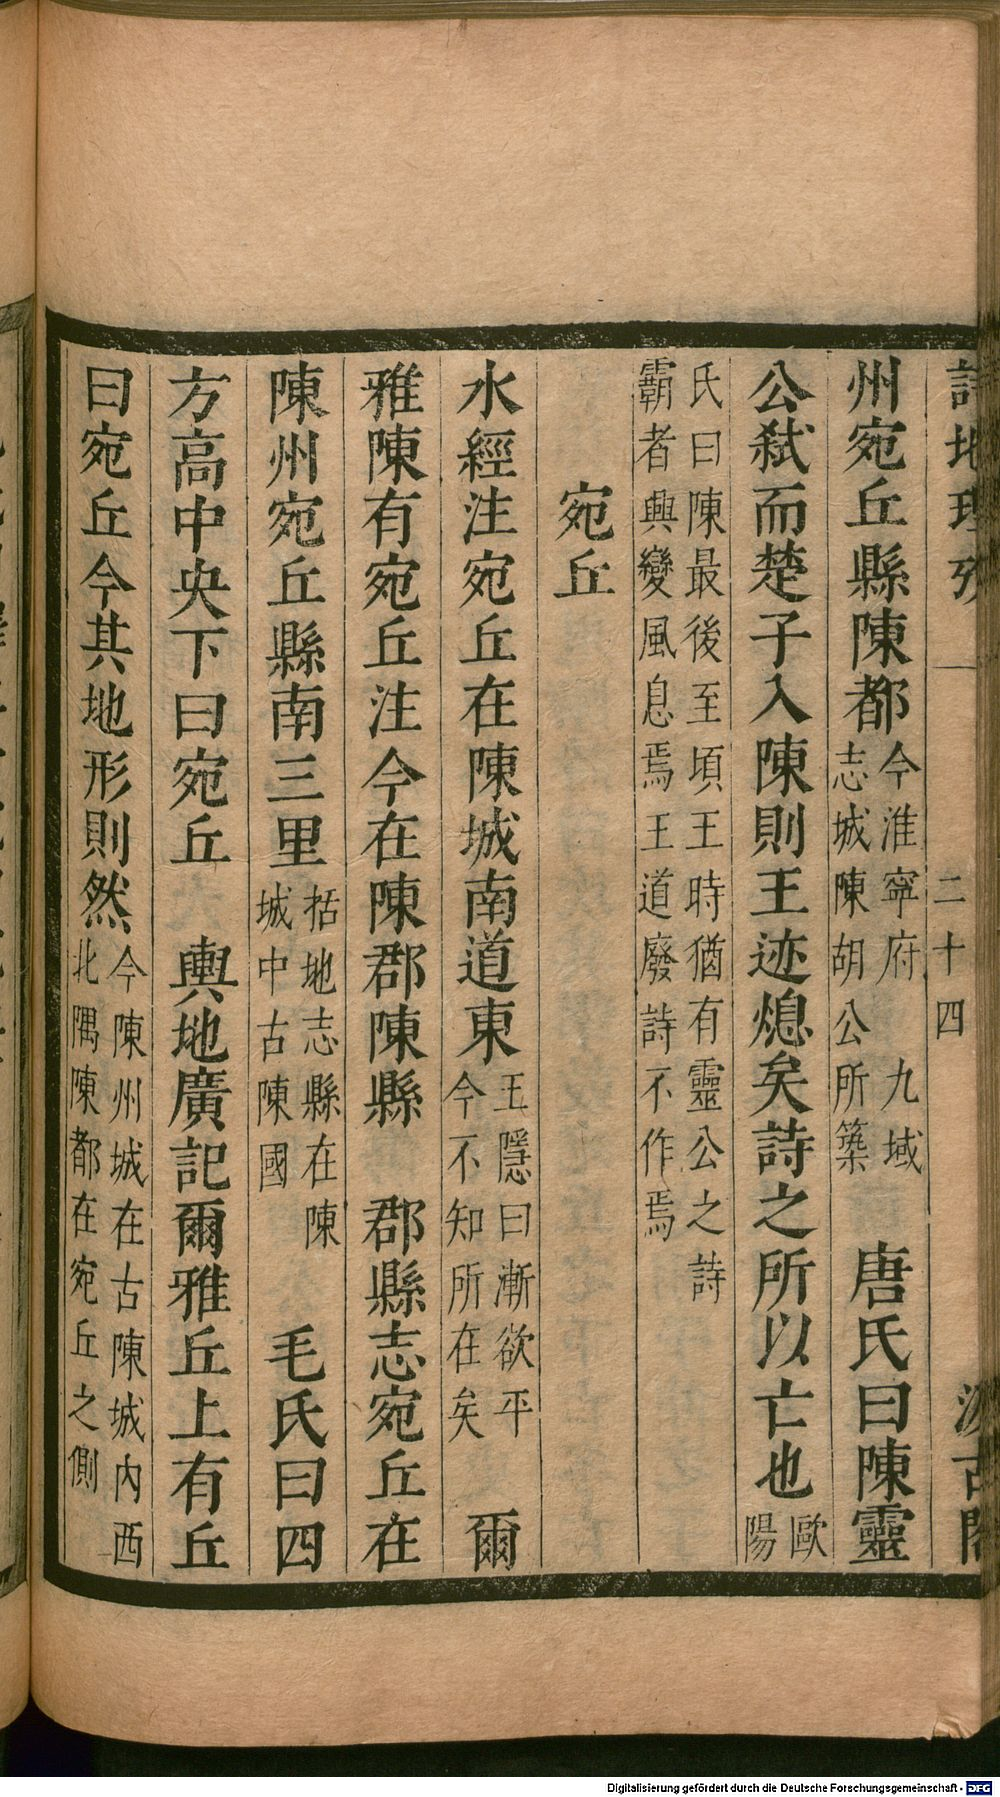 詩地理攷 一 二十四 汲古閣
州宛丘縣陳都今淮寧府 九域志城陳胡公所築 唐氏曰陳靈
公弑而楚子入陳則王迹熄矣詩之所以亡也歐陽
氏曰陳最後至頃王時猶有靈公之詩
霸者興變風息焉王道廢詩不作焉
宛丘
水經注宛丘在陳城南道東王隱曰漸欲平今不知所在矣 爾
雅陳有宛丘注今在陳郡陳縣 郡縣志宛丘在
陳州宛丘縣南三里括地志縣在陳城中古陳國 毛氏曰四
方高中央下曰宛丘 輿地廣記爾雅丘上有丘
曰宛丘今其地形則然今陳州城在古陳城內西北隅陳都在宛丘之側
Digitalisierung gefördert durch die Deutsche Forschungsgemeinschaft - DFG